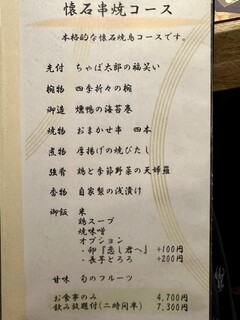 懐石串焼コース
本格的な懐石焼鳥コースです。
先付 ちゃぼ太郎の福笑い
椀物 四季折々の椀
御造 燻鴨の海苔巻
焼物 おまかせ串 四本
煮物 厚揚げの焼びたし
強肴 鶏と季節野菜の天婦羅
香物 自家製の浅漬け
御飯 米
鶏スープ
焼味噌
オプション
・卵『恋し君へ』 +100円
・長芋とろろ +200円
甘味 旬のフルーツ
お食事のみ 4,700円
飲み放題付(二時間半) 7,300円